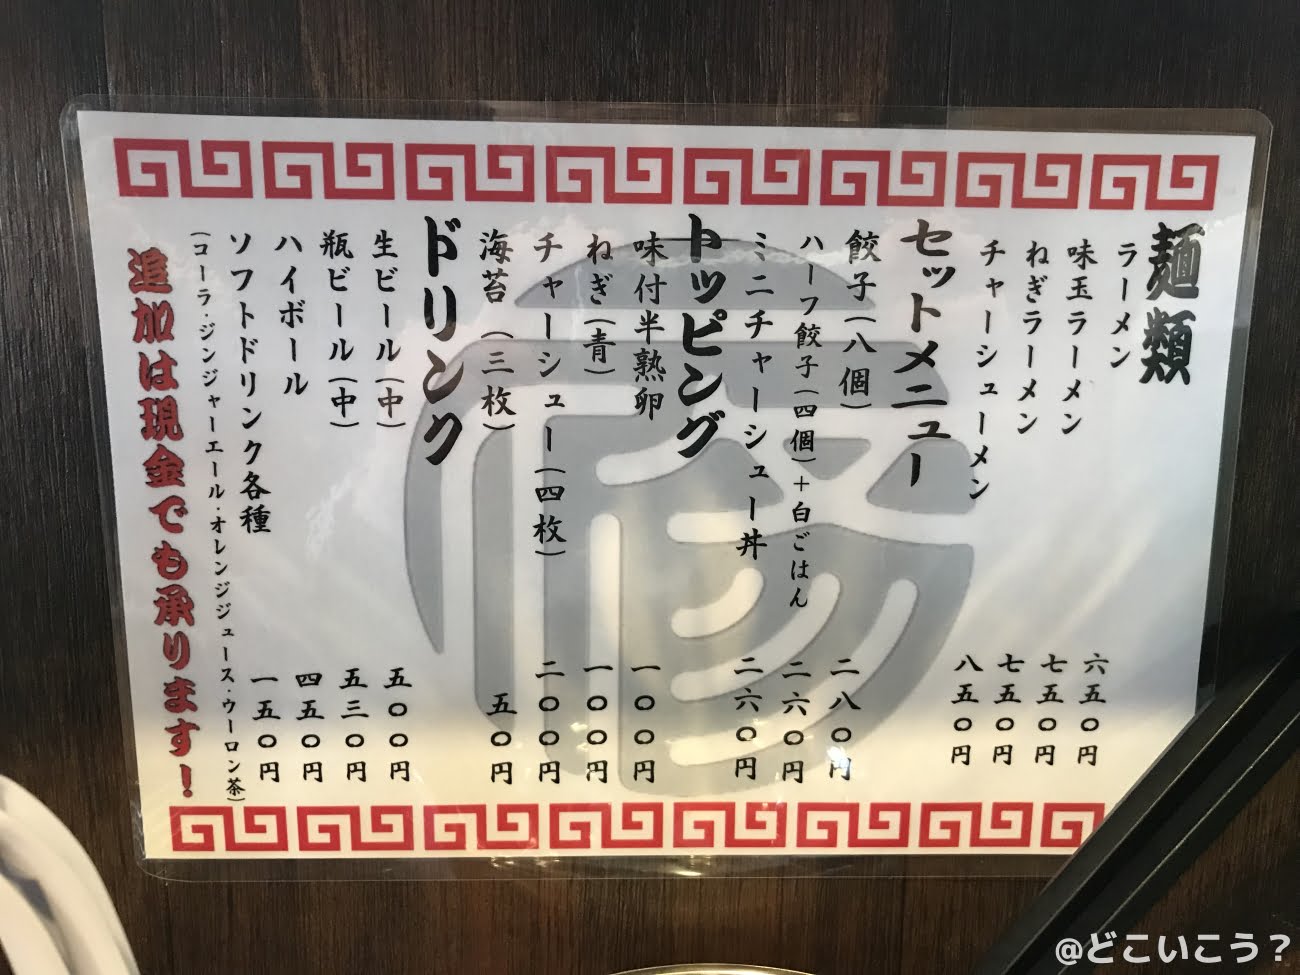 麺類
ラーメン 六五〇円
味玉ラーメン 七五〇円
ねぎラーメン 七五〇円
チャーシューメン 八五〇円
セットメニュー
餃子(八個) 二八〇円
ハーフ餃子(四個)+白ごはん 二六〇円
ミニチャーシュー丼 二六〇円
トッピング
味付半熟卵 一〇〇円
ねぎ(青) 一〇〇円
チャーシュー(四枚) 二〇〇円
海苔(三枚) 五〇円
ドリンク
生ビール(中) 五〇〇円
瓶ビール(中) 五三〇円
ハイボール 四五〇円
ソフトドリンク各種 一五〇円
(コーラ・ジンジャーエール・オレンジジュース・ウーロン茶)
追加は現金でも承ります!
@どこいこう?